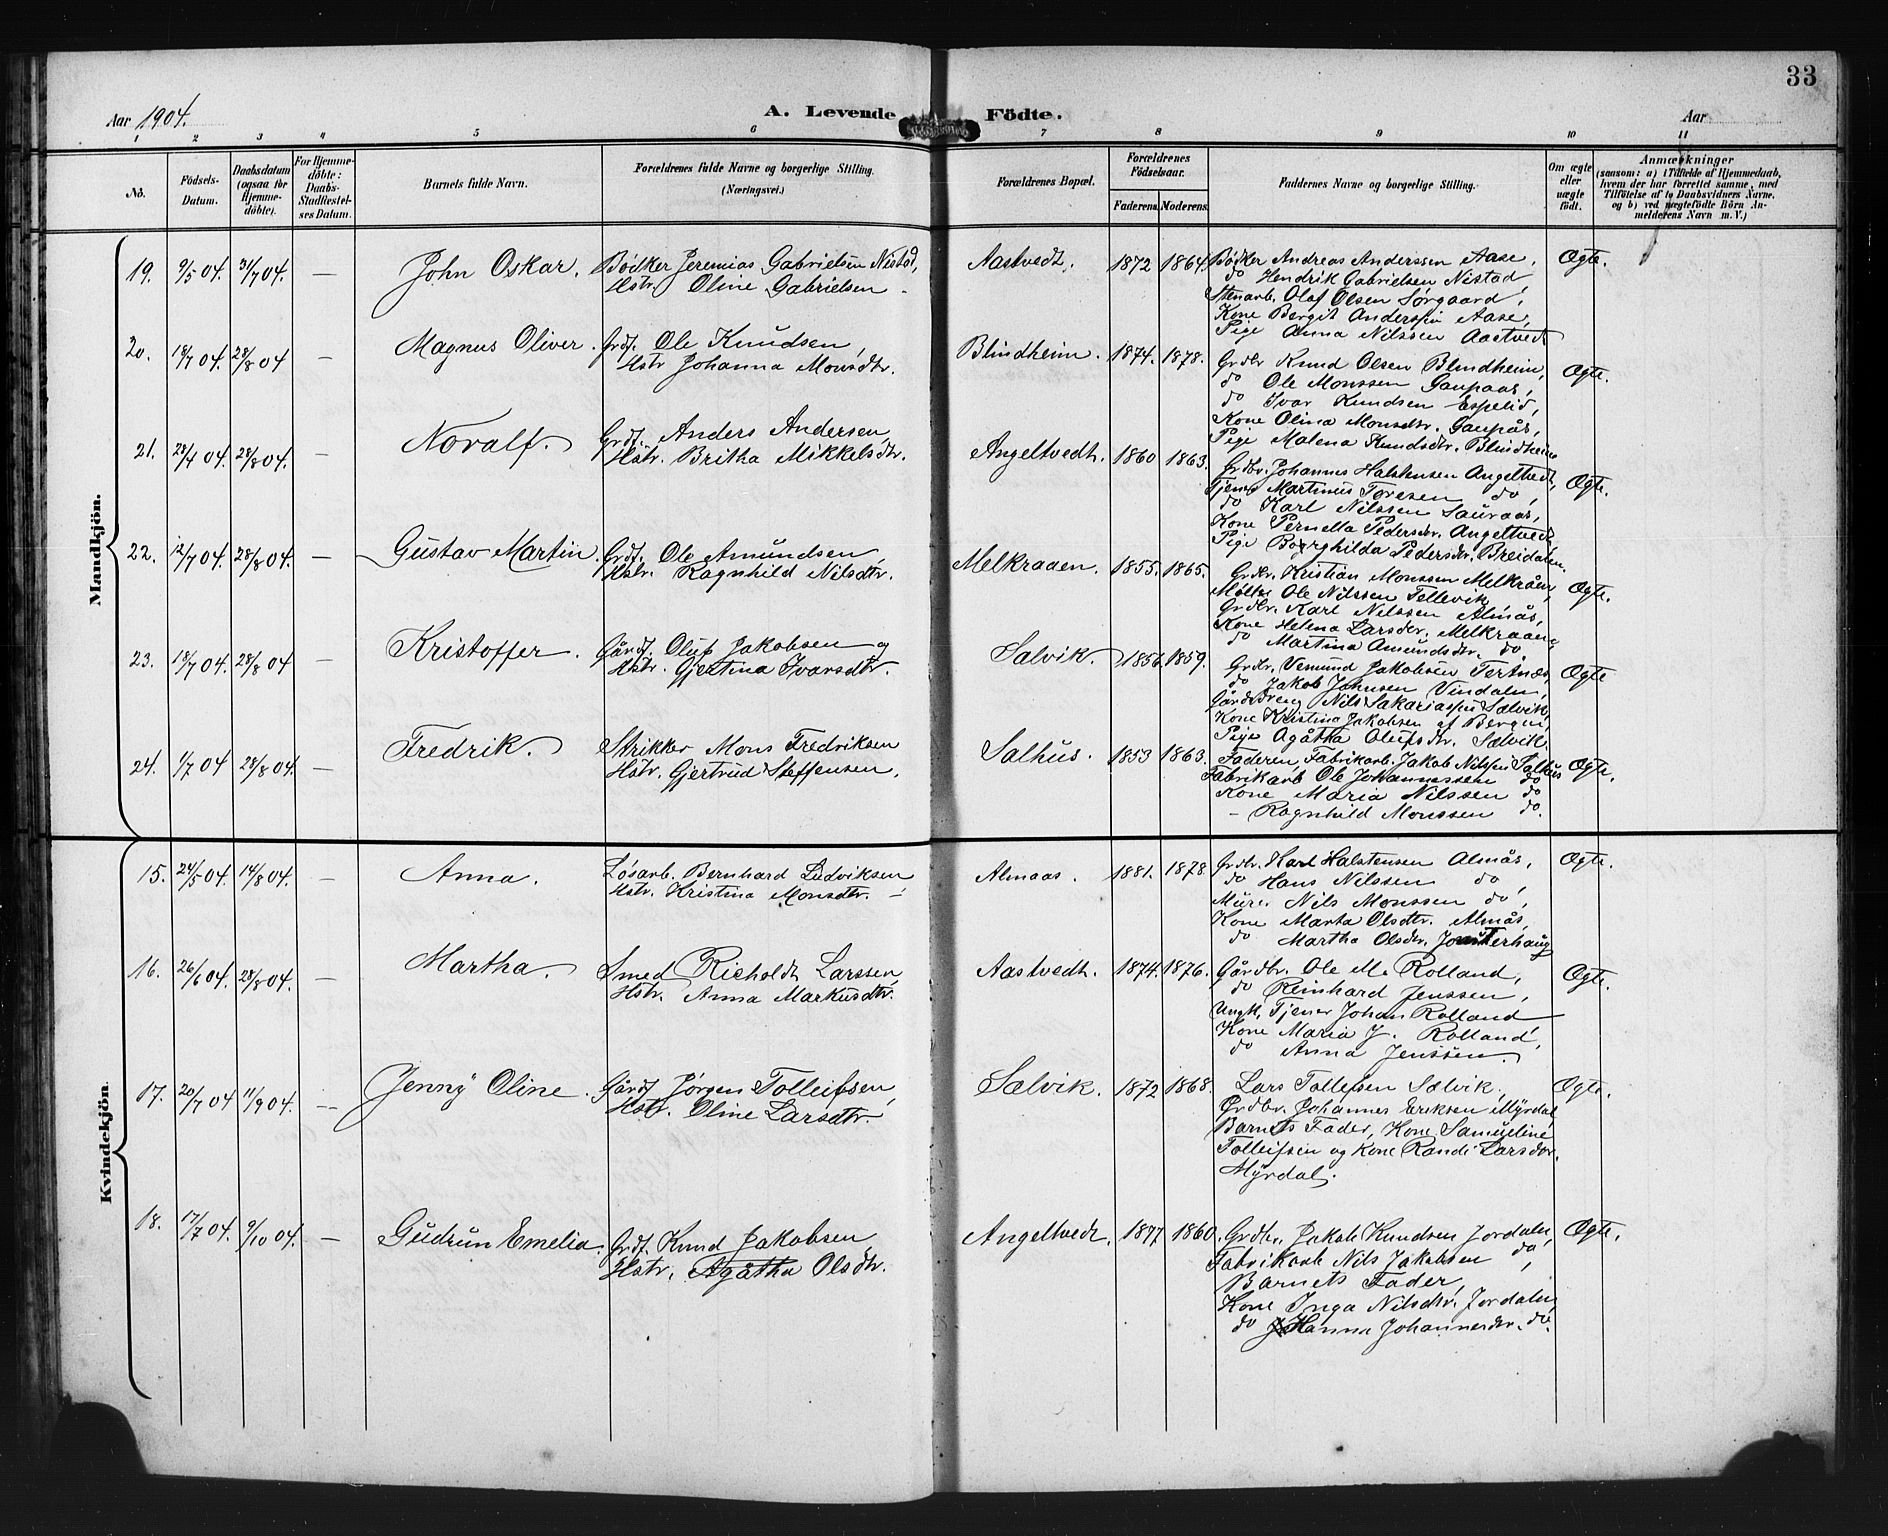 33
Aar 1904.
A. Levende Födte.
Aar
1 2 3 4 5 6 7 8 9 10 11
No.
Födsels-Datum.
Daabsdatum (ogsaa for Hjemme-döbte).
For Hjemme-döbte: Daabs-Stadfæstel-ses Datum.
Barnets fulde Navn.
Forældrenes fulde Navne og borgerlige Stilling. (Næringsvei.)
Forældrenes Bopæl.
Forældrenes Födselsaar.
Faderens. Moderens.
Faddernes Navne og borgerlige Stilling.
Om ægte eller uægte födt.
Anmærkninger
(saasom: a) i Tilfælde af Hjemmedaab,
hvem der har forrettet samme, med
Tilföielse af to Daabsvidners Navne,
og b) ved uægtefödte Börn An-
melderens Navn m. V.)
Mandkjön.
19. 9/5 04. 31/7 04. — John Oskar. Bødker Jeremias Gabrielsen Nistad,
Hstr. Oline Gabrielsen -
Aastvedt. 1872 1864. Bødker Andreas Anderssen Aase, Ægte.
do Hendrik Gabrielsen Nistad,
Stenarb. Olaf Olsen Sørgaard,
Kone Bergit Anderssen Aase,
Pige Anna Nilssen Aastvedt
20. 18/7 04. 28/8 04 — Magnus Oliver. Grdf. Ole Knudsen,
Hstr Johanna Monsdtr.
Blindheim. 1874. 1878. Grdbr Knud Olsen Blindheim, Ægte.
do Ole Monssen Gaupaas,
do Ivar Knudsen Espelid,
Kone Olina Monsdtr. Gaupås,
Pige Malena Knudsdtr. Blindheim
21. 28/4 04. 28/8 04. — Noralf. Grdf. Anders Andersen,
Hstr. Britha Mikkelsdtr.
Angeltvedt. 1860 1863. Grdbr. Johannes Halstensen Angeltvedt, Ægte.
Tjener Martinus Toresen do,
do Karl Nilssen Sauraas,
Kone Pernella Pedersdr. Angeltvedt,
Pige Borghilda Pedersdr. Breidalen.
22. 12/7 04. 28/8 04. — Gustav Martin. Grdf. Ole Amundsen,
Hstr. Ragnhild Nilsdtr.
Melkraaen. 1855. 1865. Grdbr. Kristian Monssen Melkråen, Ægte.
Ole Nilssen Tellevik,
Grdbr. Karl Nilssen Almås,
Kone Helena Larsdtr. Melkraaen,
do Martina Amundsdtr. do
23. 18/7 04. 28/8 04 — Kristoffer. Gårdf. Oluf Jakobsen og
Hstr. Gjertina Ivarsdtr.
Salvik. 1856 1859. Grdbr. Vemund Jakobsen Tertnæs, Ægte
do Jakob Johnsen Vindalen,
Gårdsdreng Nils Sakariassen Sælvik,
Kone Kristina Jakobsen af Bergen,
Pige Agåtha Olufsdtr. Sælvik
24. 1/7 04 28/8 04. — Fredrik. Strikker Mons Fredriksen
Hstr. Gjertrud Steffensen.
Salhus. 1853 1863. Faderen, Fabrikarb. Jakob Nilssen Salhus Ægte.
Fabrikarb Ole Johannessen do
Kone Maria Nilssen do
— Ragnhild Monssen do.
Kvindekjön.
15. 24/5 04. 14/8 04. — Anna. Løsarb. Bernhard Ludviksen,
Hstr. Kristina Monsdtr. —
Almaas. 1881. 1878 Grdbr. Karl Halstensen Almås, Ægte.
do Hans Nilssen do,
Murer Nils Monssen do,
Kone Marta Olsdtr. Almås,
do Martha Olsdtr.
16. 26/6 04. 28/8 04. — Martha. Smed Richoldt Larssen,
Hstr. Anna Markusdtr.
Aastvedt. 1874. 1876. Gårdbr. Ole M. Rolland, Ægte.
do Reinhard Jenssen,
Ungk. Tjener Johan Rolland
Kone Maria J. Rolland,
do Anna Jenssen.
17. 20/7 04 11/9 04. — Jenny Oline. Gårdf Jørgen Tolleifsen,
Hstr. Oline Larsdtr.
Sælvik. 1872 1868. Lars Tollefsen Sælvik, Ægte.
Grdbr. Johannes Eriksen Myrdal,
Barnets Fader, Kone Samueline
Tolleifsen og Kone Randi Larsdtr.
Myrdal.
18. 17/7 04. 9/10 04. — Gudrun Emelia. Grdf. Knud Jakobsen
Hstr. Agåtha Olsdtr.
Angeltvedt. 1877 1860. Grdbr. Jakob Knudsen Jordalen, Ægte.
Fabrikarb Nils Jakobsen do,
Barnets Fader,
Kone Inga Nilsdtr. Jordalen,
do Hanna Johannesdtr. do.